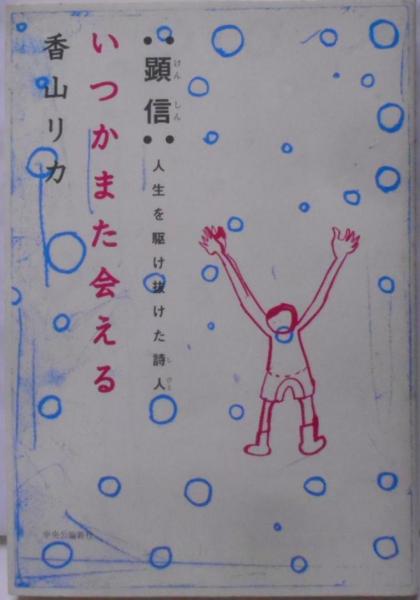 顕信
けんしん
人生を駆け抜けた詩人
しびと
いつかまた会える
香山リカ
中央公論新社